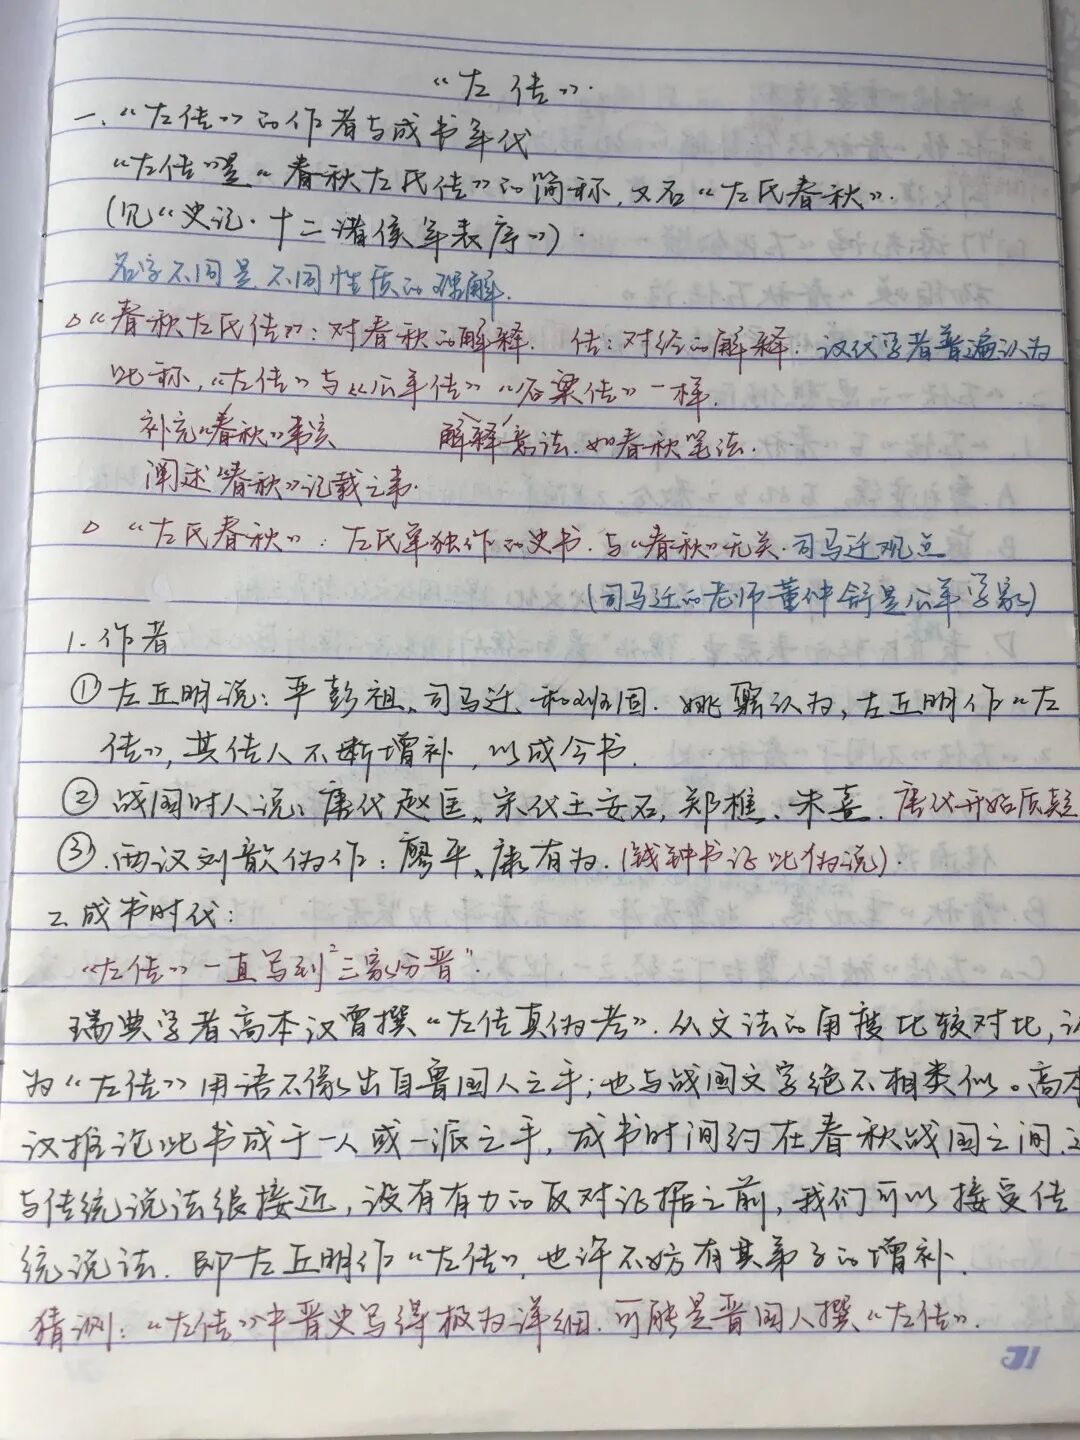 《左传》.
一、《左传》的作者与成书年代
《左传》是《春秋左氏传》的简称,又名《左氏春秋》.
(见《史记·十二诸侯年表序》).
名字不同是不同性质的理解.
《春秋左氏传》:对春秋的解释. 传:对经的解释. 汉代学者普遍认为
此称,《左传》与《公羊传》《谷梁传》一样.
补充《春秋》事 解释意法.如春秋笔法.
阐述《春秋》记载之事.
《左氏春秋》:左氏单独作的史书.与《春秋》无关.司马迁观点
(司马迁的老师董仲舒是公羊学家)
1.作者
①左丘明说:严彭祖、司马迁、和班固. 姚鼐认为,左丘明作《左
传》,其传人不断增补,以成今书.
②战国时人说:唐代赵匡、宋代王安石,郑樵、朱熹.唐代开始质疑
③.两汉刘歆伪作:廖平、康有为.(钱钟书证此伪说).
2.成书时代:
《左传》一直写到"三家分晋".
瑞典学者高本汉曾撰《左传真伪考》.从文法的角度比较对比,认
为《左传》用语不像出自鲁国人之手;也与战国文字绝不相类似。高本
汉推论此书成于一人或一派之手,成书时间约在春秋战国之间.这
与传统说法很接近,没有有力的反对证据之前,我们可以接受传
统说法.即左丘明作《左传》,也许不妨有其弟子的增补.
猜测:《左传》中晋史写得极为详细.可能是晋国人撰《左传》.